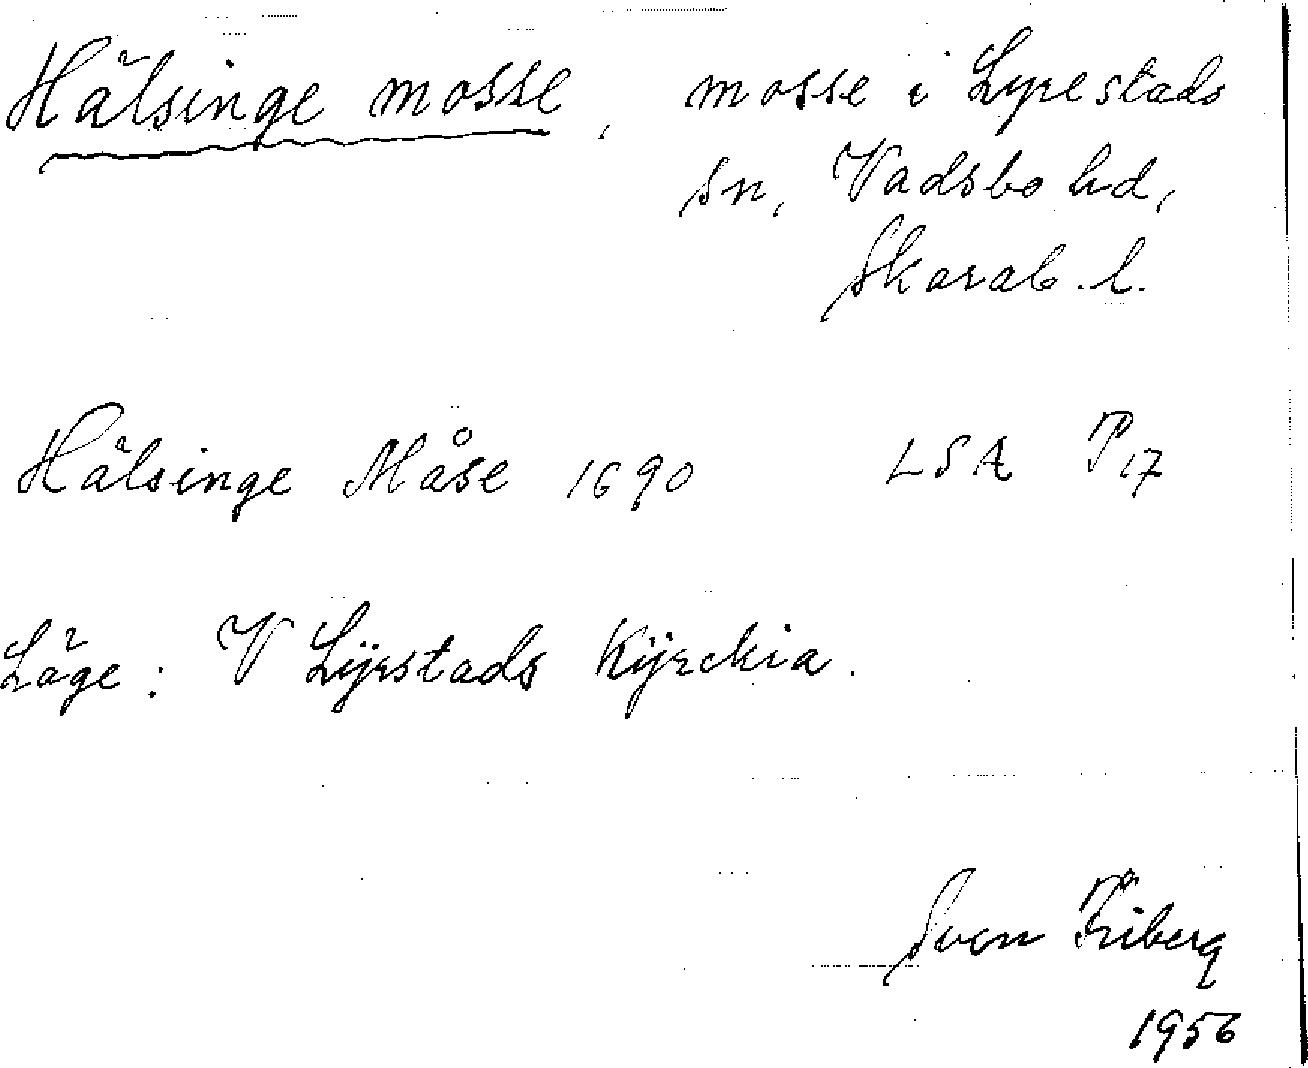 Hälsinge mosse, mosse i Lyrestads
sn, Vadsbo hd,
Skarab. l.
Hälsinge Måse 1690 LSA P17
Läge: V Lÿrstads Kÿrckia.
Sven Friberg
1956